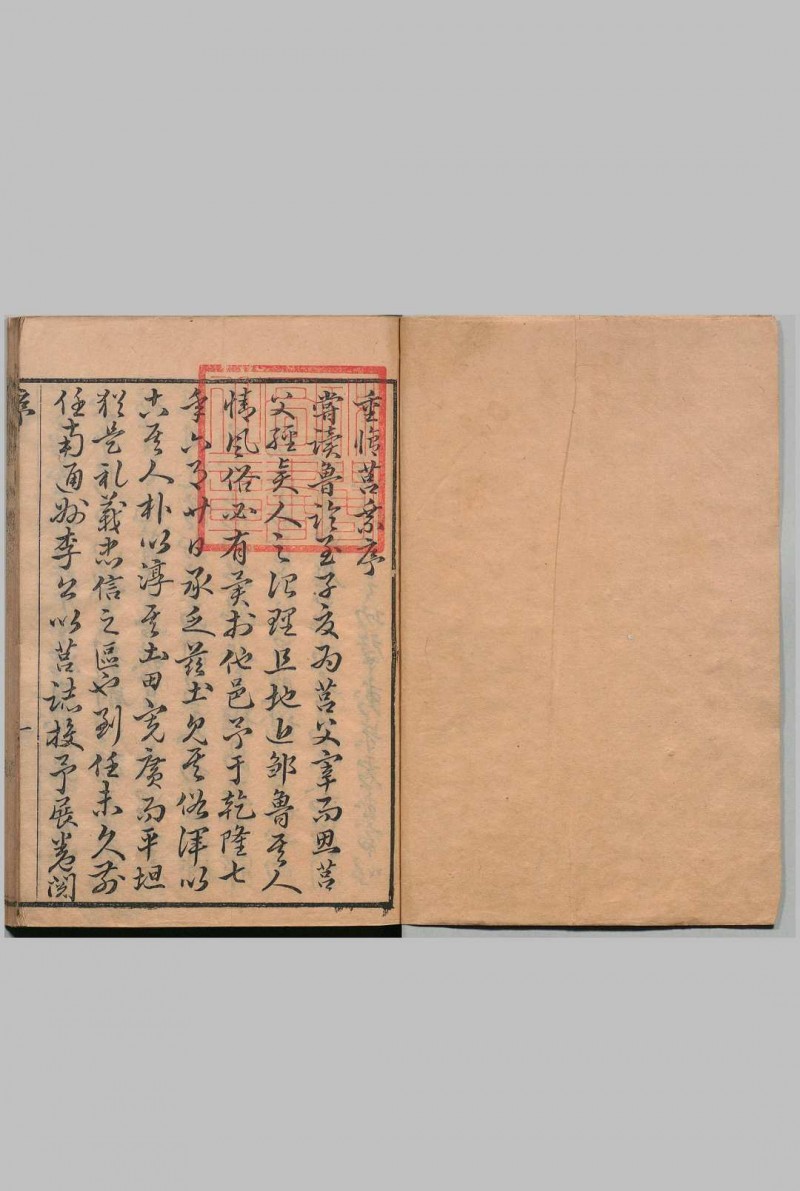 重修莒乘序
嘗讀魯論至子夏為莒父宰而思莒
父經賢人之治理且地近鄒魯其人
情風俗必有異於他邑予于乾隆七
年六月廿日承乏茲土見其俗渾以
古其人朴以淳其土田寬廣而平坦
猶是礼義忠信之區也到任未久前
任南通州李公以莒誌授予展卷閱
序
一